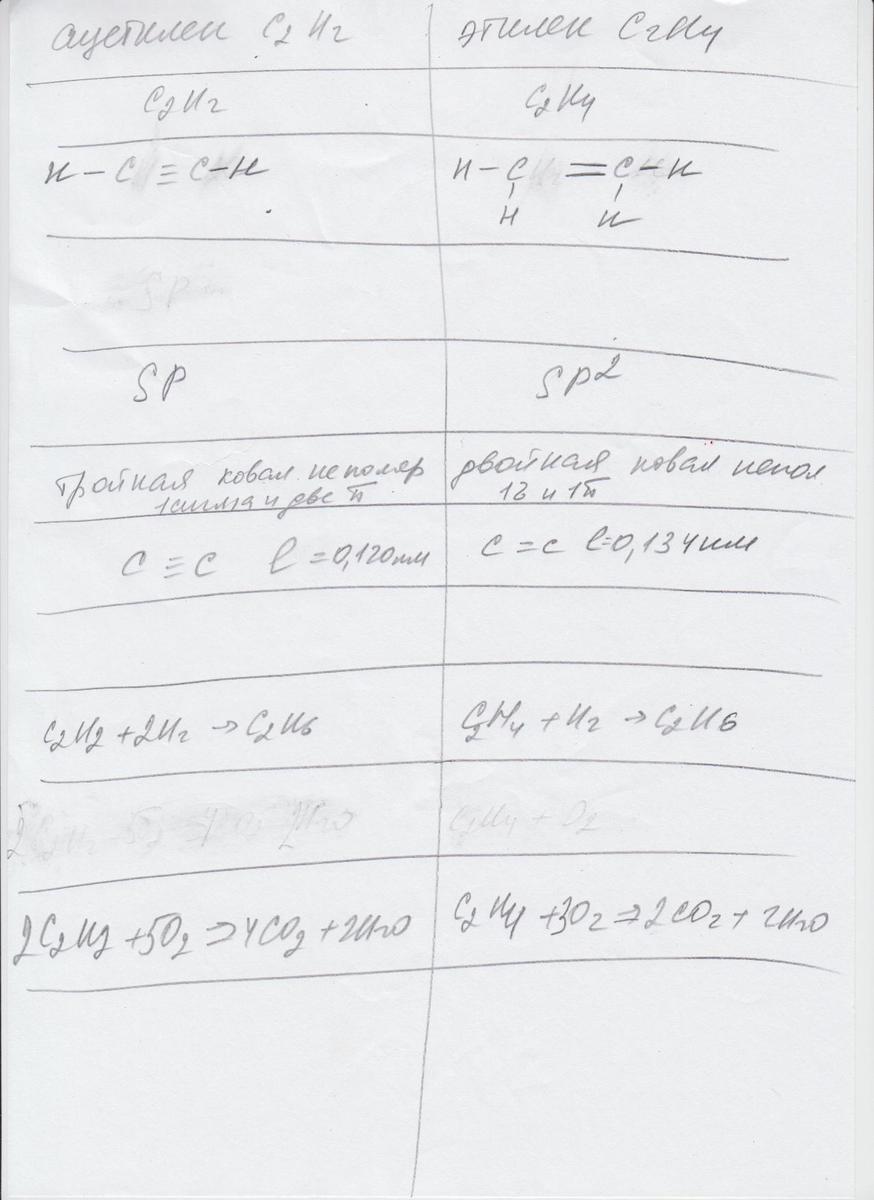 ацетилен C2H2 этилен C2H4
C2H2 C2H4
H – C ≡ C – H H – C = C – H
H H
SP
SP SP2
тройная ковал. неполяр двойная ковал непол
1сигма и две π 1б и 1π
C ≡ C l = 0,120нм C = C l=0,134нм
C2H2 + 2H2 → C2H6 C2H4 + H2 → C2H6
C2H4 + O2
2C2H2 + 5O2 ⇒ 4CO2 + 2H2O C2H4 + 3O2 ⇒ 2CO2 + 2H2O